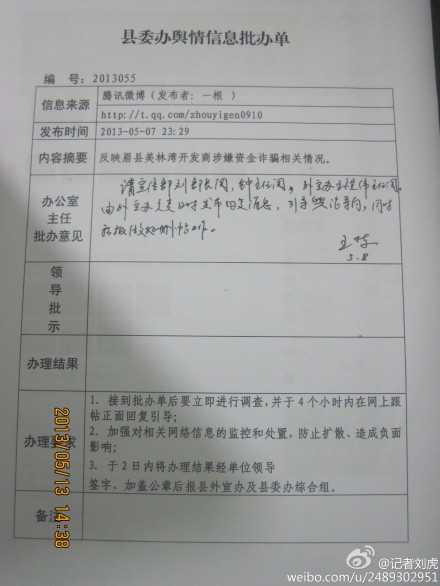 县委办舆情信息批办单
编 号:2013055
信息来源
腾讯微博(发布者:一根 )
http://t.qq.com/zhouyigen0910
发布时间
2013-05-07 23:29
内容摘要
反映眉县美林湾开发商涉嫌资金诈骗相关情况。
办公室
主任
批办意见
请宣传部刘部长阅,钟主任阅,外宣办主任伟主任阅
由外宣办负责及时发布相关消息,引导舆论导向,同时
积极做好删帖工作。
5.8
领
导
批
示
办理结果
办理要求
1. 接到批办单后要立即进行调查,并于4个小时内在网上跟
帖正面回复引导;
2. 加强对相关网络信息的监控和处置,防止扩散、造成负面
影响;
3. 于2日内将办理结果经单位领导
签字、加盖公章后报县外宣办及县委办综合组。
备注
2013/05/13 14:38
@记者刘虎
weibo.com/u/2489302951